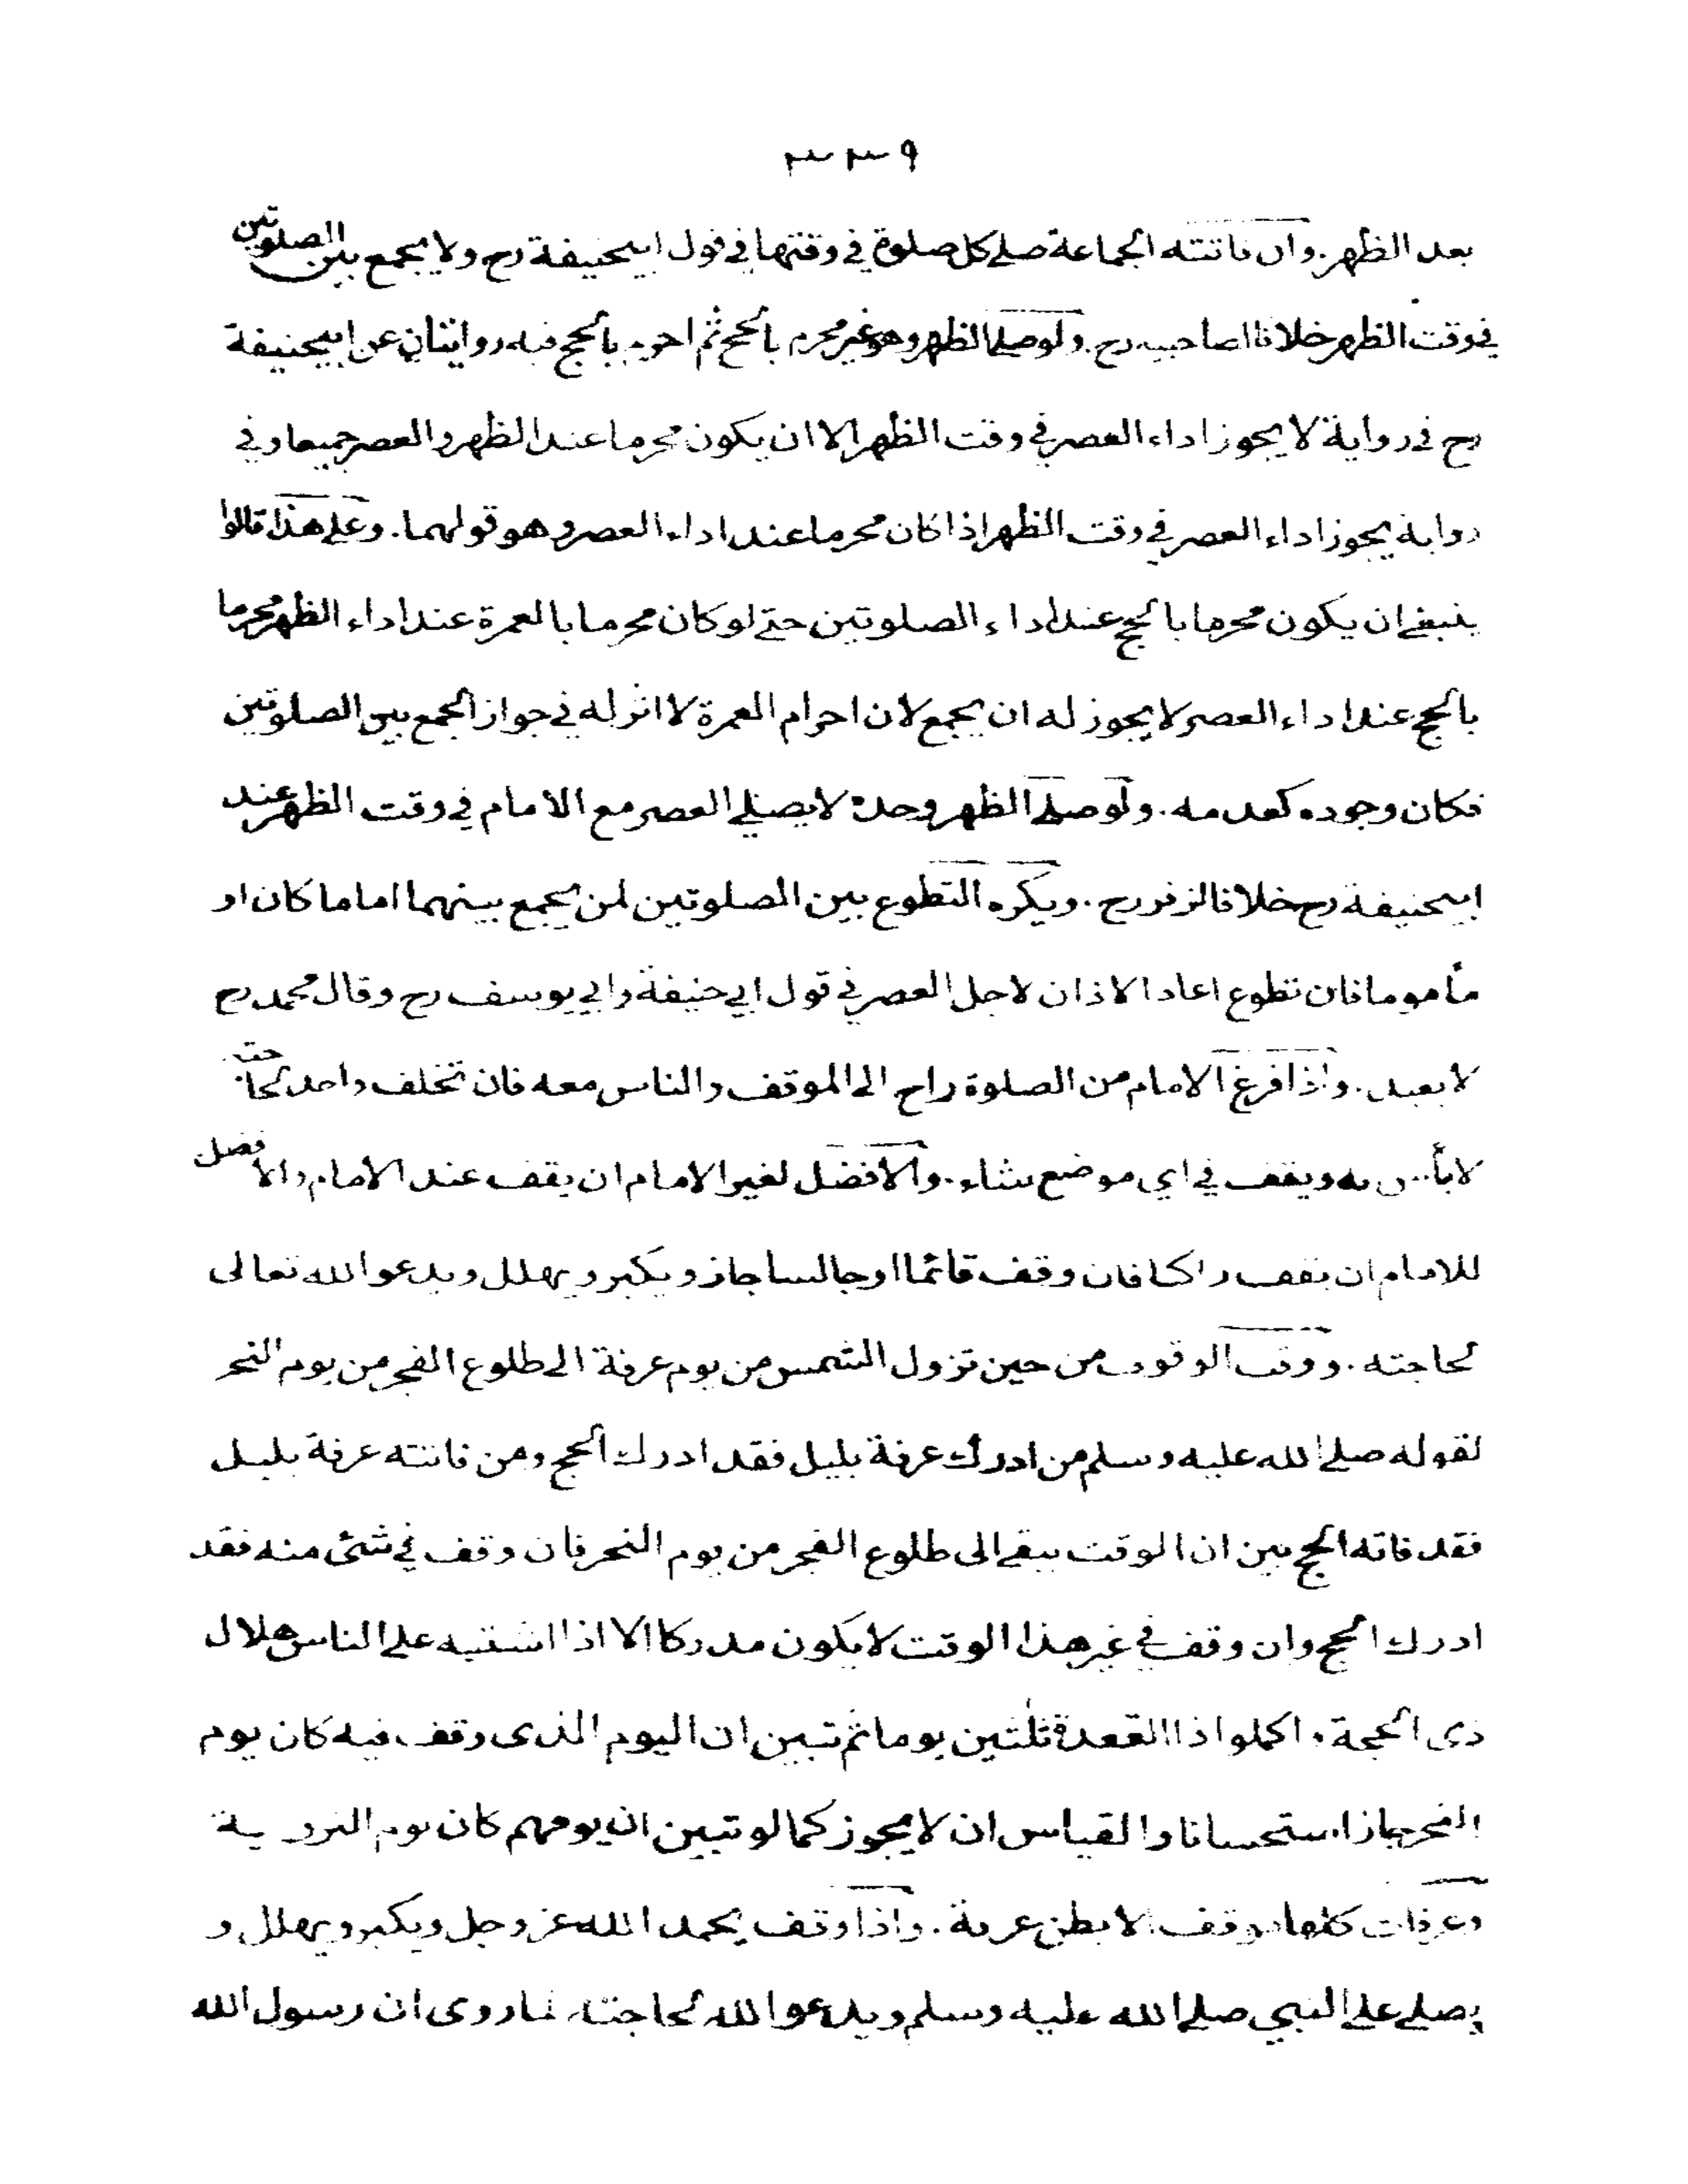 ٣٣٩
بعد الظهر. وان فاتته الجماعة صلے كل صلوة في وقتها في قول ابيحنيفة رح ولا يجمع بين الصلوتين
في وقت الظهر خلافا لصاحبيه رح. ولو صلے الظهر وهو غير محرم بالحج ثم احرم بالحج فيه روايتان عن ابيحنيفة
رح في رواية لا يجوز اداء العصر في وقت الظهر الا ان يكون محرما عند الظهر والعصر جميعا وفي
رواية يجوز اداء العصر في وقت الظهر اذا كان محرما عند اداء العصر وهو قولهما. وعلے هذا قالوا
ينبغے ان يكون محرما بالحج عند اداء الصلوتين حتے لو كان محرما بالعمرة عند اداء الظهر محرما
بالحج عند اداء العصر لا يجوز له ان يجمع لان احرام العمرة لا اثر له في جواز الجمع بين الصلوتين
فكان وجوده كعدمه. ولو صلے الظهر وحده لا يصلے العصر مع الامام في وقت الظهر عند
ابيحنيفة رح خلافا لزفر رح. ويكره التطوع بين الصلوتين لمن يجمع بينهما اماما كان او
مأموما فان تطوع اعاد الاذان لاجل العصر في قول ابي حنيفة وابي يوسف رح وقال محمد رح
لا يعيد. واذا فرغ الامام من الصلوة راح الى الموقف والناس معه فان تخلف واحد لحاجته
لا بأس به ويقف في اي موضع شاء. والافضل لغير الامام ان يقف عند الامام والافضل
للامام ان يقف راكبا فان وقف قائما او جالسا جاز ويكبر ويهلل ويدعوا الله تعالى
لحاجته. ووقت الوقوف من حين تزول الشمس من يوم عرفة الى طلوع الفجر من يوم النحر
لقوله صلے الله عليه وسلم من ادرك عرفة بليل فقد ادرك الحج ومن فاتته عرفة بليل
فقد فاته الحج بين ان الوقت يبقے الى طلوع الفجر من يوم النحر فان وقف في شئ منه فقد
ادرك الحج وان وقف في غير هذا الوقت لا يكون مدركا الا اذا اشتبه علے الناس هلال
ذى الحجة. اكملوا ذا القعدة ثلثين يوما ثم تبين ان اليوم الذى وقف فيه كان يوم
النحر جاز استحسانا والقياس ان لا يجوز كما لو تبين ان يومهم كان يوم التروية
وعرفات كلها موقف الا بطن عرنة. واذا وقف يحمد الله عز وجل ويكبر ويهلل و
يصلے علے النبي صلے الله عليه وسلم ويدعوا الله لحاجته لما روى ان رسول الله